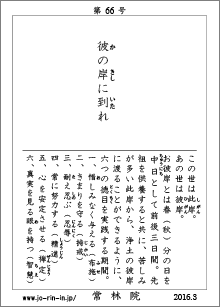 第 66 号
彼の岸に到れ
か きし いた
この世は此岸。
あの世は彼岸。
お彼岸とは春(秋)分の日を
中日として前後三日間。先
祖を供養すると共に、苦しみ
が多い此岸から、浄土の彼岸
に渡ることができるように、
六つの徳目を実践する期間。
一、惜しみなく与える(布施)
二、きまりを守る(持戒)
三、耐え忍ぶ(忍辱)
四、常に努力する(精進)
五、心を安定させる(禅定)
六、真実を見る眼を持つ(智慧)
www.jo-rin-in.jp/
常林院
2016.3